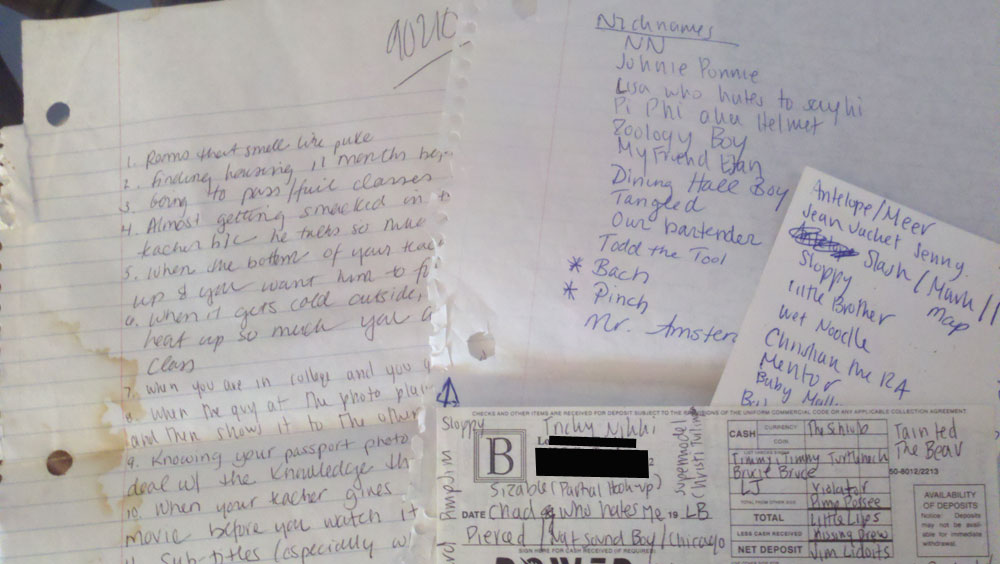 90210
1. Rooms that smell like puke
2. Finding housing 11 months
3. Going to pass/fail classes
4. Almost getting smacked in
teacher b/c he talks so
5. When the bottom of your
up & you want him to
6. When it gets cold outside,
heat up so much you
class
7. When you are in college and you
8. When the guy at the photo
and then show it to the other
9. Knowing your passport photo
deal w/ the knowledge
10. When your teacher gives
movie before you watch it
Sub-titles (especially
Nicknames
NN
Johnie Ponnie
Lisa who hates to say hi
Pi Phi aka Helmet
Zoology Boy
My Friend
Dining Hall Boy
Tangled
Our bartender
Todd the Tool
* Bach
* Pinch
Mr.
Antelope/Meer
Jean Jacket Jenny
Slash/Mark/
Map
Sloppy
Little Brother
Wet Noodle
Christian the RA
Mentor
Baby
CHECKS AND OTHER ITEMS ARE RECEIVED FOR DEPOSIT SUBJECT TO THE PROVISIONS OF THE UNIFORM COMMERCIAL CODE OR ANY APPLICABLE COLLECTION AGREEMENT.
Sloppy
B
Nikki
Supermodel
Christi
Sizable (Partial Hook-up)
DATE Chad who hates me 19 LB
Pierced / Nat Sound Boy/Chicago
SIGN HERE FOR CASH RECEIVED (IF REQUIRED)
CASH
CURRENCY The Schlub
COIN
Timmy Timmy Turtleneck
Bruce Bruce
LJ Violator
TOTAL FROM OTHER SIDE Pimp Possee
TOTAL Little Lips
LESS CASH RECEIVED Kissing Drew
NET DEPOSIT
Tainted
The Bear
50-8012/2213
AVAILABILITY
OF DEPOSITS
Notice: Deposits
may not be avail-
able for immediate
withdrawal.